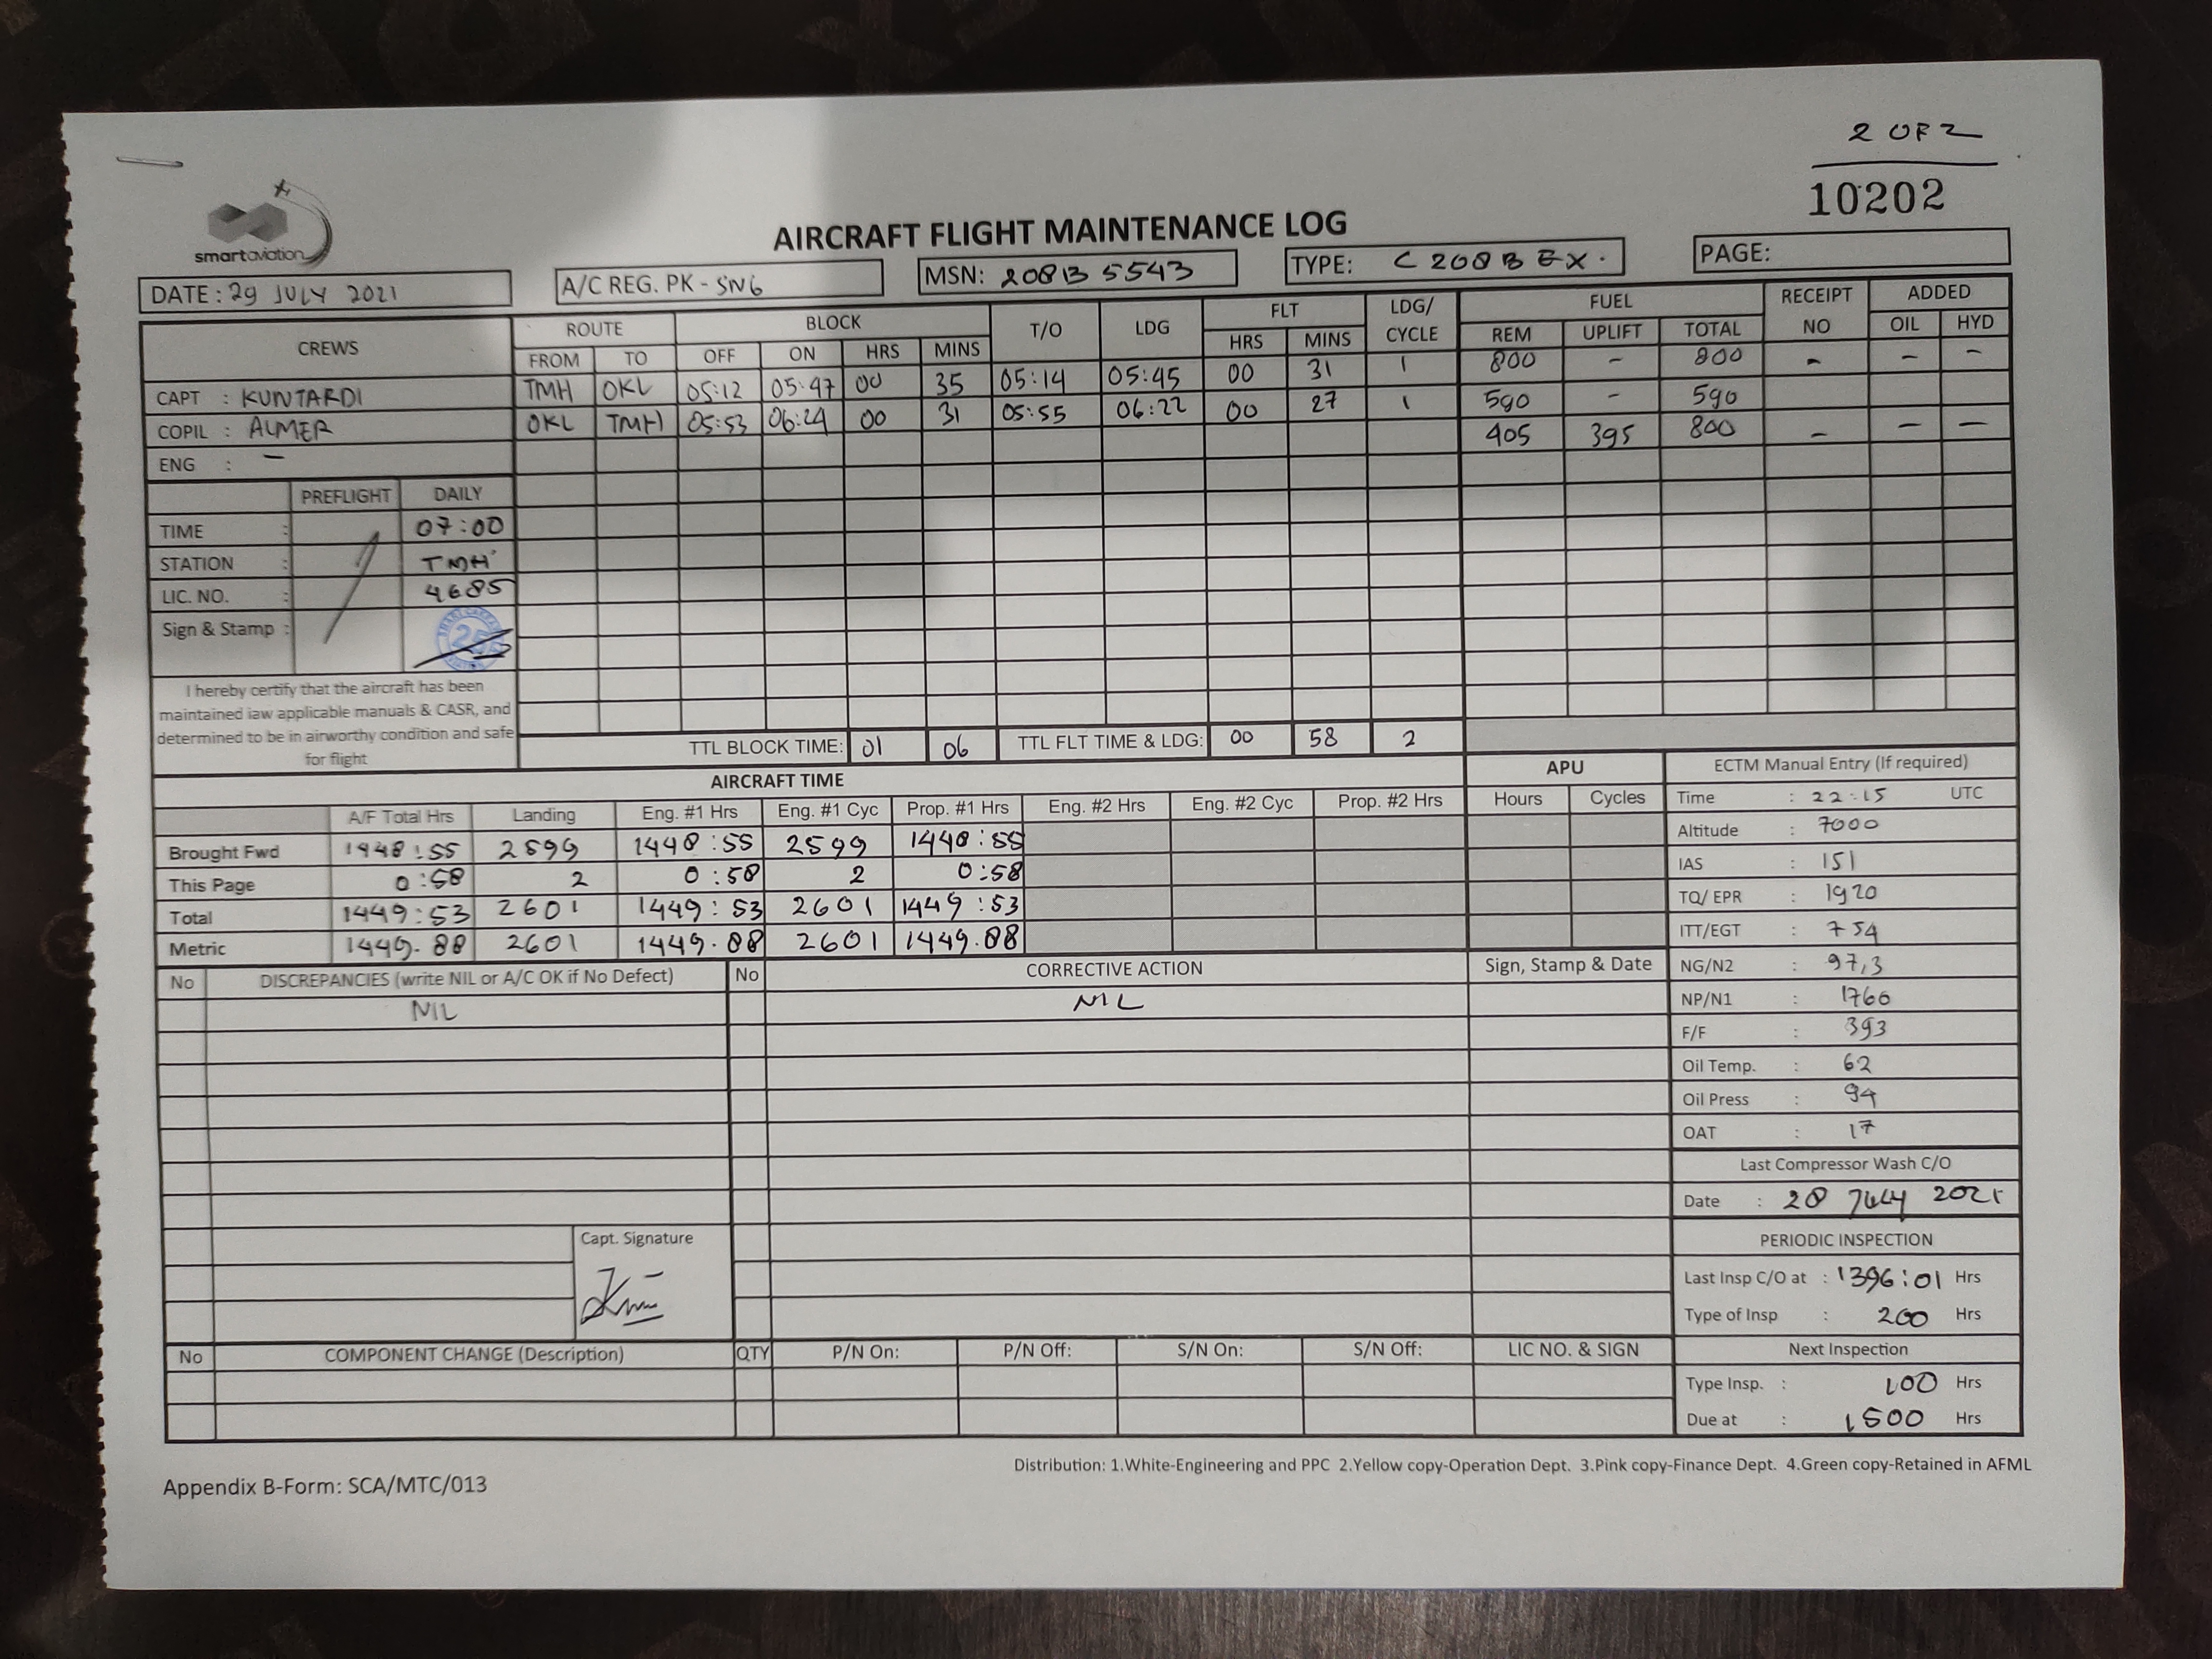 2 OF 2
10202
smartaviation
AIRCRAFT FLIGHT MAINTENANCE LOG
DATE : 29 JULY 2021 A/C REG. PK - SNG MSN: 208B 5543 TYPE: C 208 B EX. PAGE:
CREWS ROUTE BLOCK T/O LDG FLT LDG/ CYCLE FUEL RECEIPT NO ADDED
FROM TO OFF ON HRS MINS HRS MINS REM UPLIFT TOTAL OIL HYD
CAPT : KUNTARDI TMH OKL 05:12 05:47 00 35 05:14 05:45 00 31 1 800 - 800 - - -
COPIL : ALMER OKL TMH 05:53 06:24 00 31 05:55 06:22 00 27 1 590 - 590
ENG : - 405 395 800 - - -
PREFLIGHT DAILY
TIME : 07:00
STATION : TMH
LIC. NO. : 4685
Sign & Stamp :
I hereby certify that the aircraft has been
maintained iaw applicable manuals & CASR, and
determined to be in airworthy condition and safe
for flight
TTL BLOCK TIME: 01 06 TTL FLT TIME & LDG: 00 58 2
AIRCRAFT TIME APU ECTM Manual Entry (If required)
A/F Total Hrs Landing Eng. #1 Hrs Eng. #1 Cyc Prop. #1 Hrs Eng. #2 Hrs Eng. #2 Cyc Prop. #2 Hrs Hours Cycles
Brought Fwd 1448:55 2599 1448:55 2599 1448:55
This Page 0:58 2 0:58 2 0:58
Total 1449:53 2601 1449:53 2601 1449:53
Metric 1449.88 2601 1449.88 2601 1449.88
Time : 22:15 UTC
Altitude : 7000
IAS : 151
TQ/ EPR : 1920
ITT/EGT : 754
NG/N2 : 97,3
NP/N1 : 1760
F/F : 393
Oil Temp. : 62
Oil Press : 94
OAT : 17
Last Compressor Wash C/O
Date : 28 July 2021
PERIODIC INSPECTION
Last Insp C/O at : 1396:01 Hrs
Type of Insp : 200 Hrs
Next Inspection
Type Insp. : 100 Hrs
Due at : 1500 Hrs
No DISCREPANCIES (write NIL or A/C OK if No Defect) No CORRECTIVE ACTION Sign, Stamp & Date
NIL NIL
Capt. Signature
No COMPONENT CHANGE (Description) QTY P/N On: P/N Off: S/N On: S/N Off: LIC NO. & SIGN
Distribution: 1.White-Engineering and PPC 2.Yellow copy-Operation Dept. 3.Pink copy-Finance Dept. 4.Green copy-Retained in AFML
Appendix B-Form: SCA/MTC/013